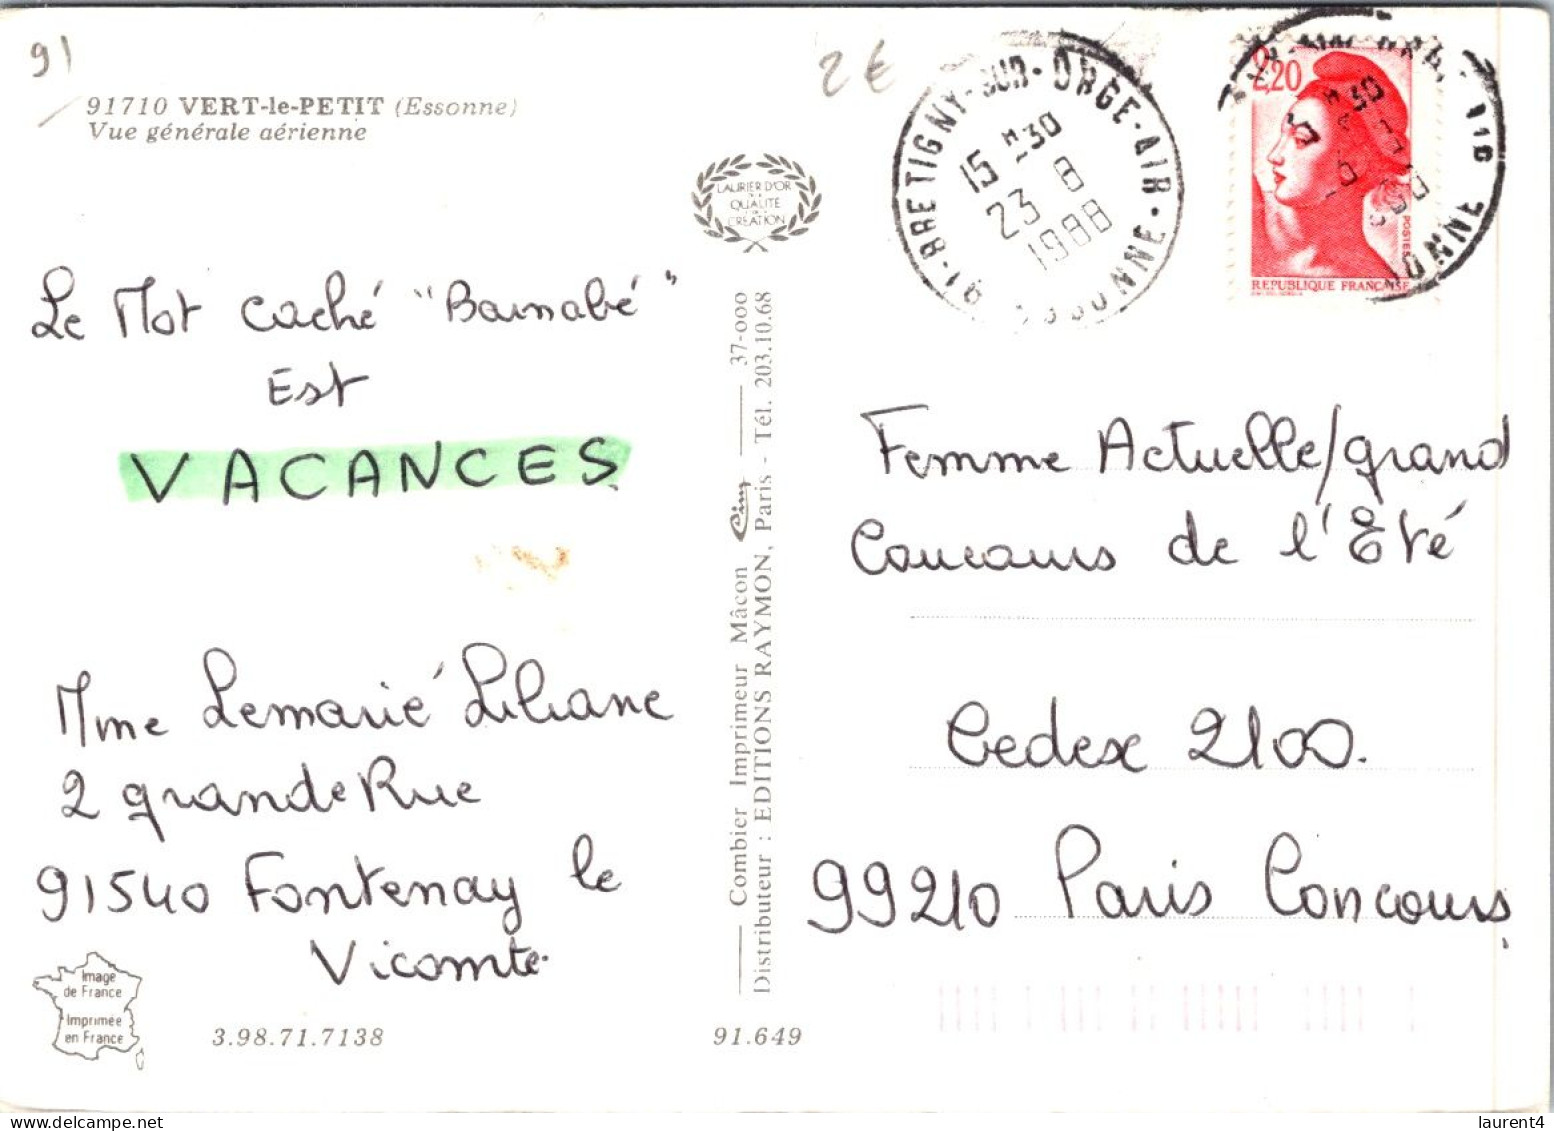 91
2€
91710 VERT-le-PETIT (Essonne)
Vue générale aérienne
LAURIER D'OR
DE LA
QUALITÉ
CRÉATION
91-BRETIGNY-SUR-ORGE-AIR-ESSONNE-
15 H 30
23 8
1988
2,20
POSTES
REPUBLIQUE FRANÇAISE
Le Mot caché "Barnabé"
Est
VACANCES
Mme Lemarié Liliane
2 grande Rue
91540 Fontenay le
Vicomte.
Combier Imprimeur Mâcon Cim 37-000
Distributeur : EDITIONS RAYMON, Paris - Tél. 203.10.68
Femme Actuelle/grand
Concours de l'Eté
Cedex 2100.
99210 Paris Concours,
Image
de France
Imprimée
en France
3.98.71.7138
91.649
laurent4